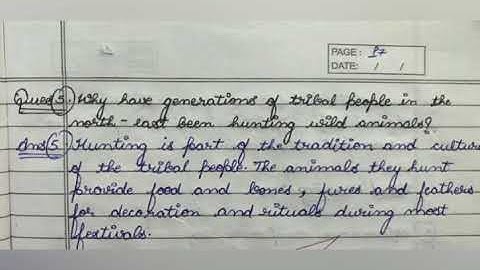 PAGE: 37
DATE: / /
Ques(5). Why have generations of tribal people in the
north-east been hunting wild animals?
Ans(5) Hunting is part of the tradition and culture
of the tribal people. The animals they hunt
provide food and bones, fures and feathers
for decoration and rituals during most
festivals.